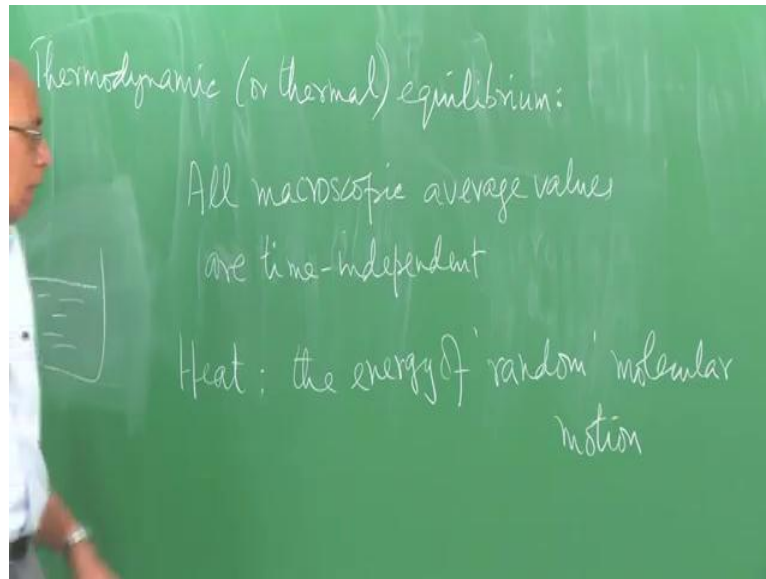 Thermodynamic (or thermal) equilibrium:
All macroscopic average values
are time-independent
Heat: the energy of 'random' molecular
motion